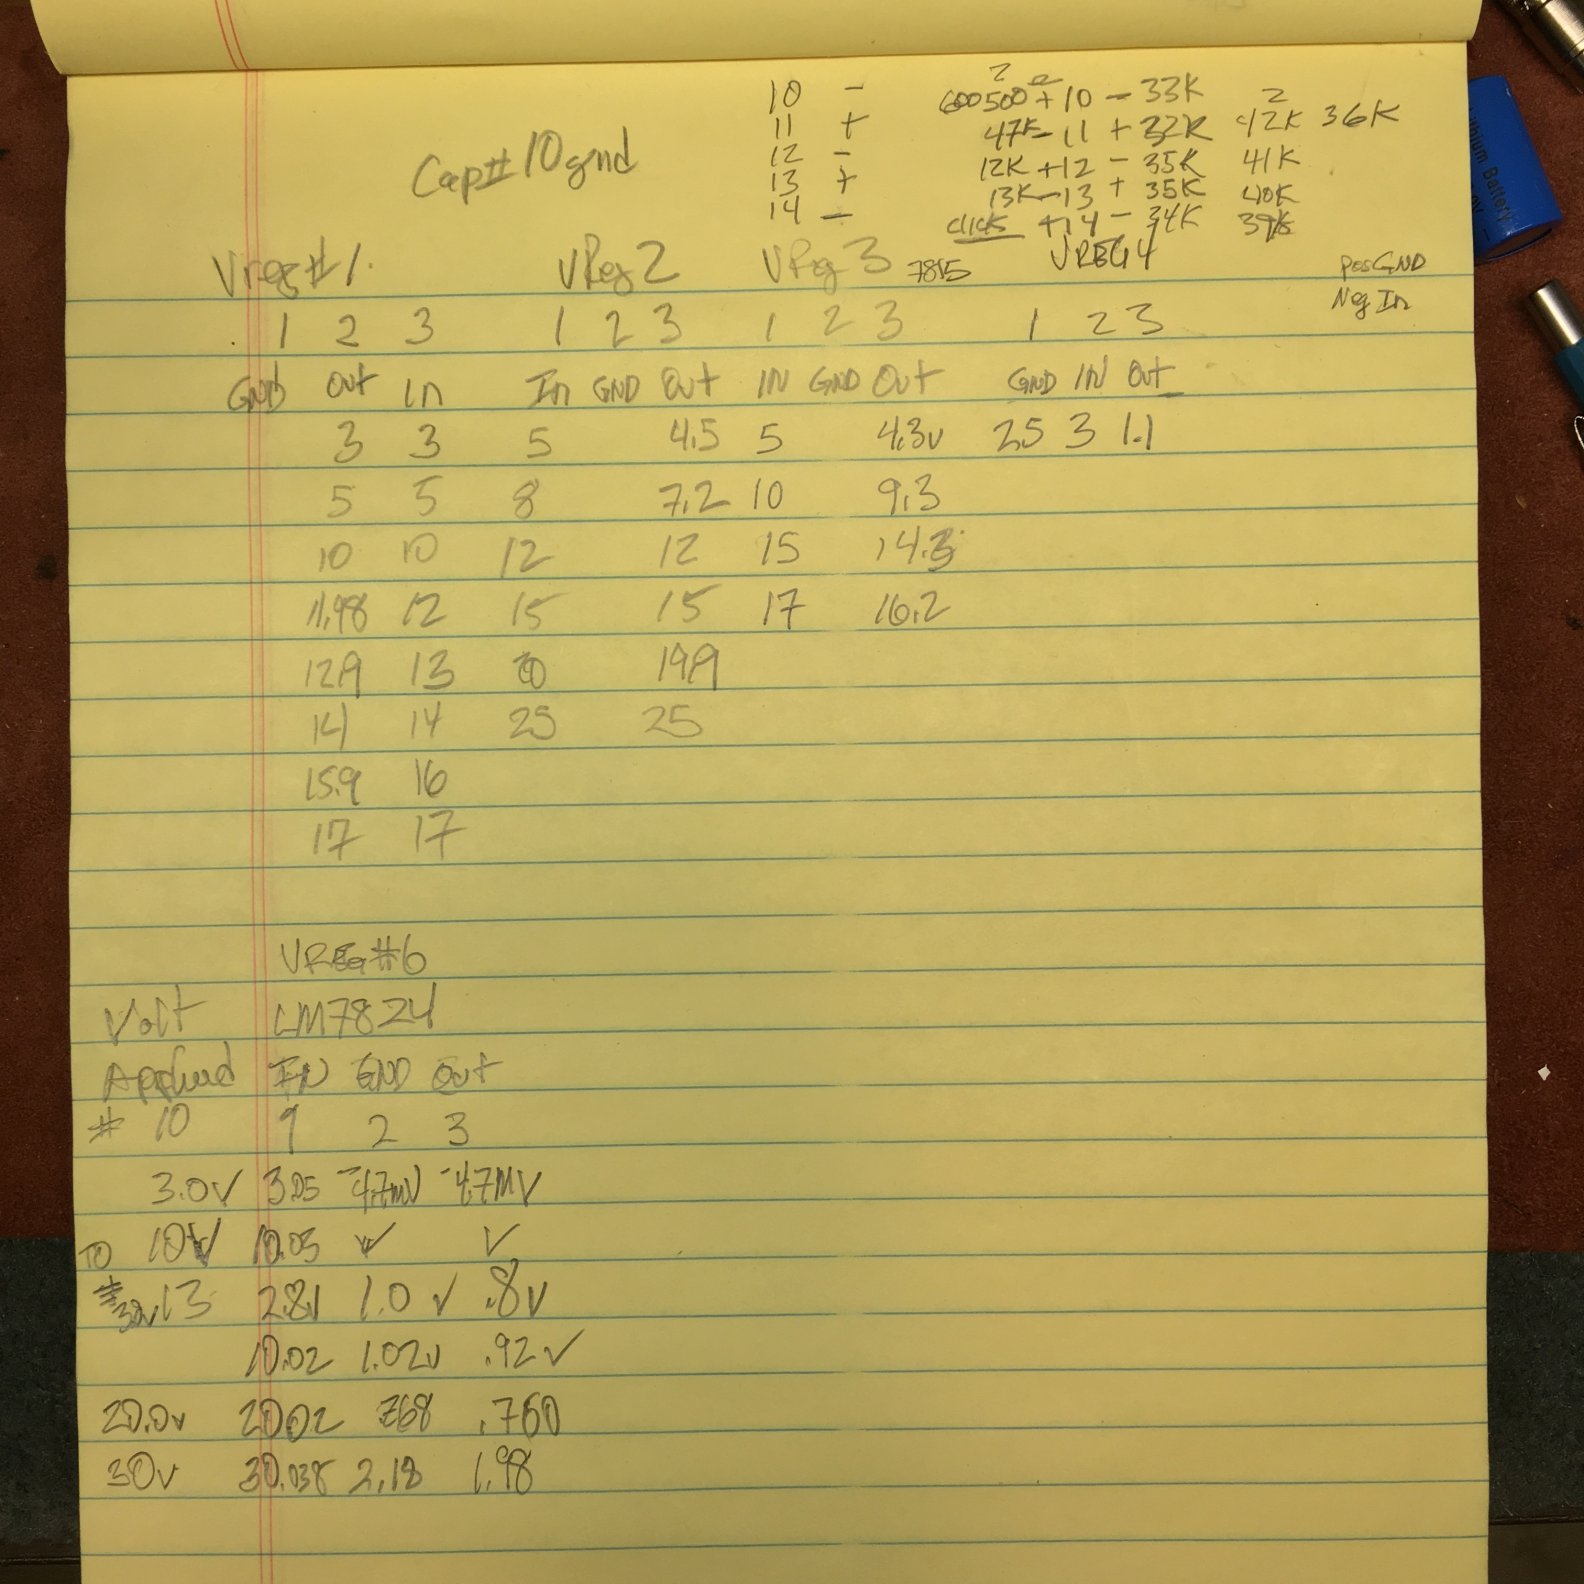 10 - 600 500Ω + 10 - 33K 2
11 + 47K - 11 + 32K 42K 36K
Cap# 10 gnd 12 - 12K + 12 - 35K 41K
13 + 13K - 13 + 35K 40K
14 - click + 14 - 34K 39K
Vreg#1. VReg2 VReg3 7815 VREG4 Pos GND
Neg In
1 2 3 1 2 3 1 2 3 1 2 3
GND Out In In GND Out IN GND Out GND IN Out
3 3 5 4.5 5 4.3v 2.5 3 1.1
5 5 8 7.2 10 9.3
10 10 12 12 15 14.3
11.98 12 15 15 17 16.2
12.9 13 20 19.9
14 14 25 25
15.9 16
17 17
VREG#6
Volt LM7824
Applied IN GND Out
# 10 1 2 3
3.0V 3.05 -4.7mV -4.7MV
TO 10V 10.05 ✓ ✓
# 13 2.8v 1.0 v .8v
10.02 1.02v .92 v
20.0v 20.02 .768 .760
30v 30.038 2.18 1.98